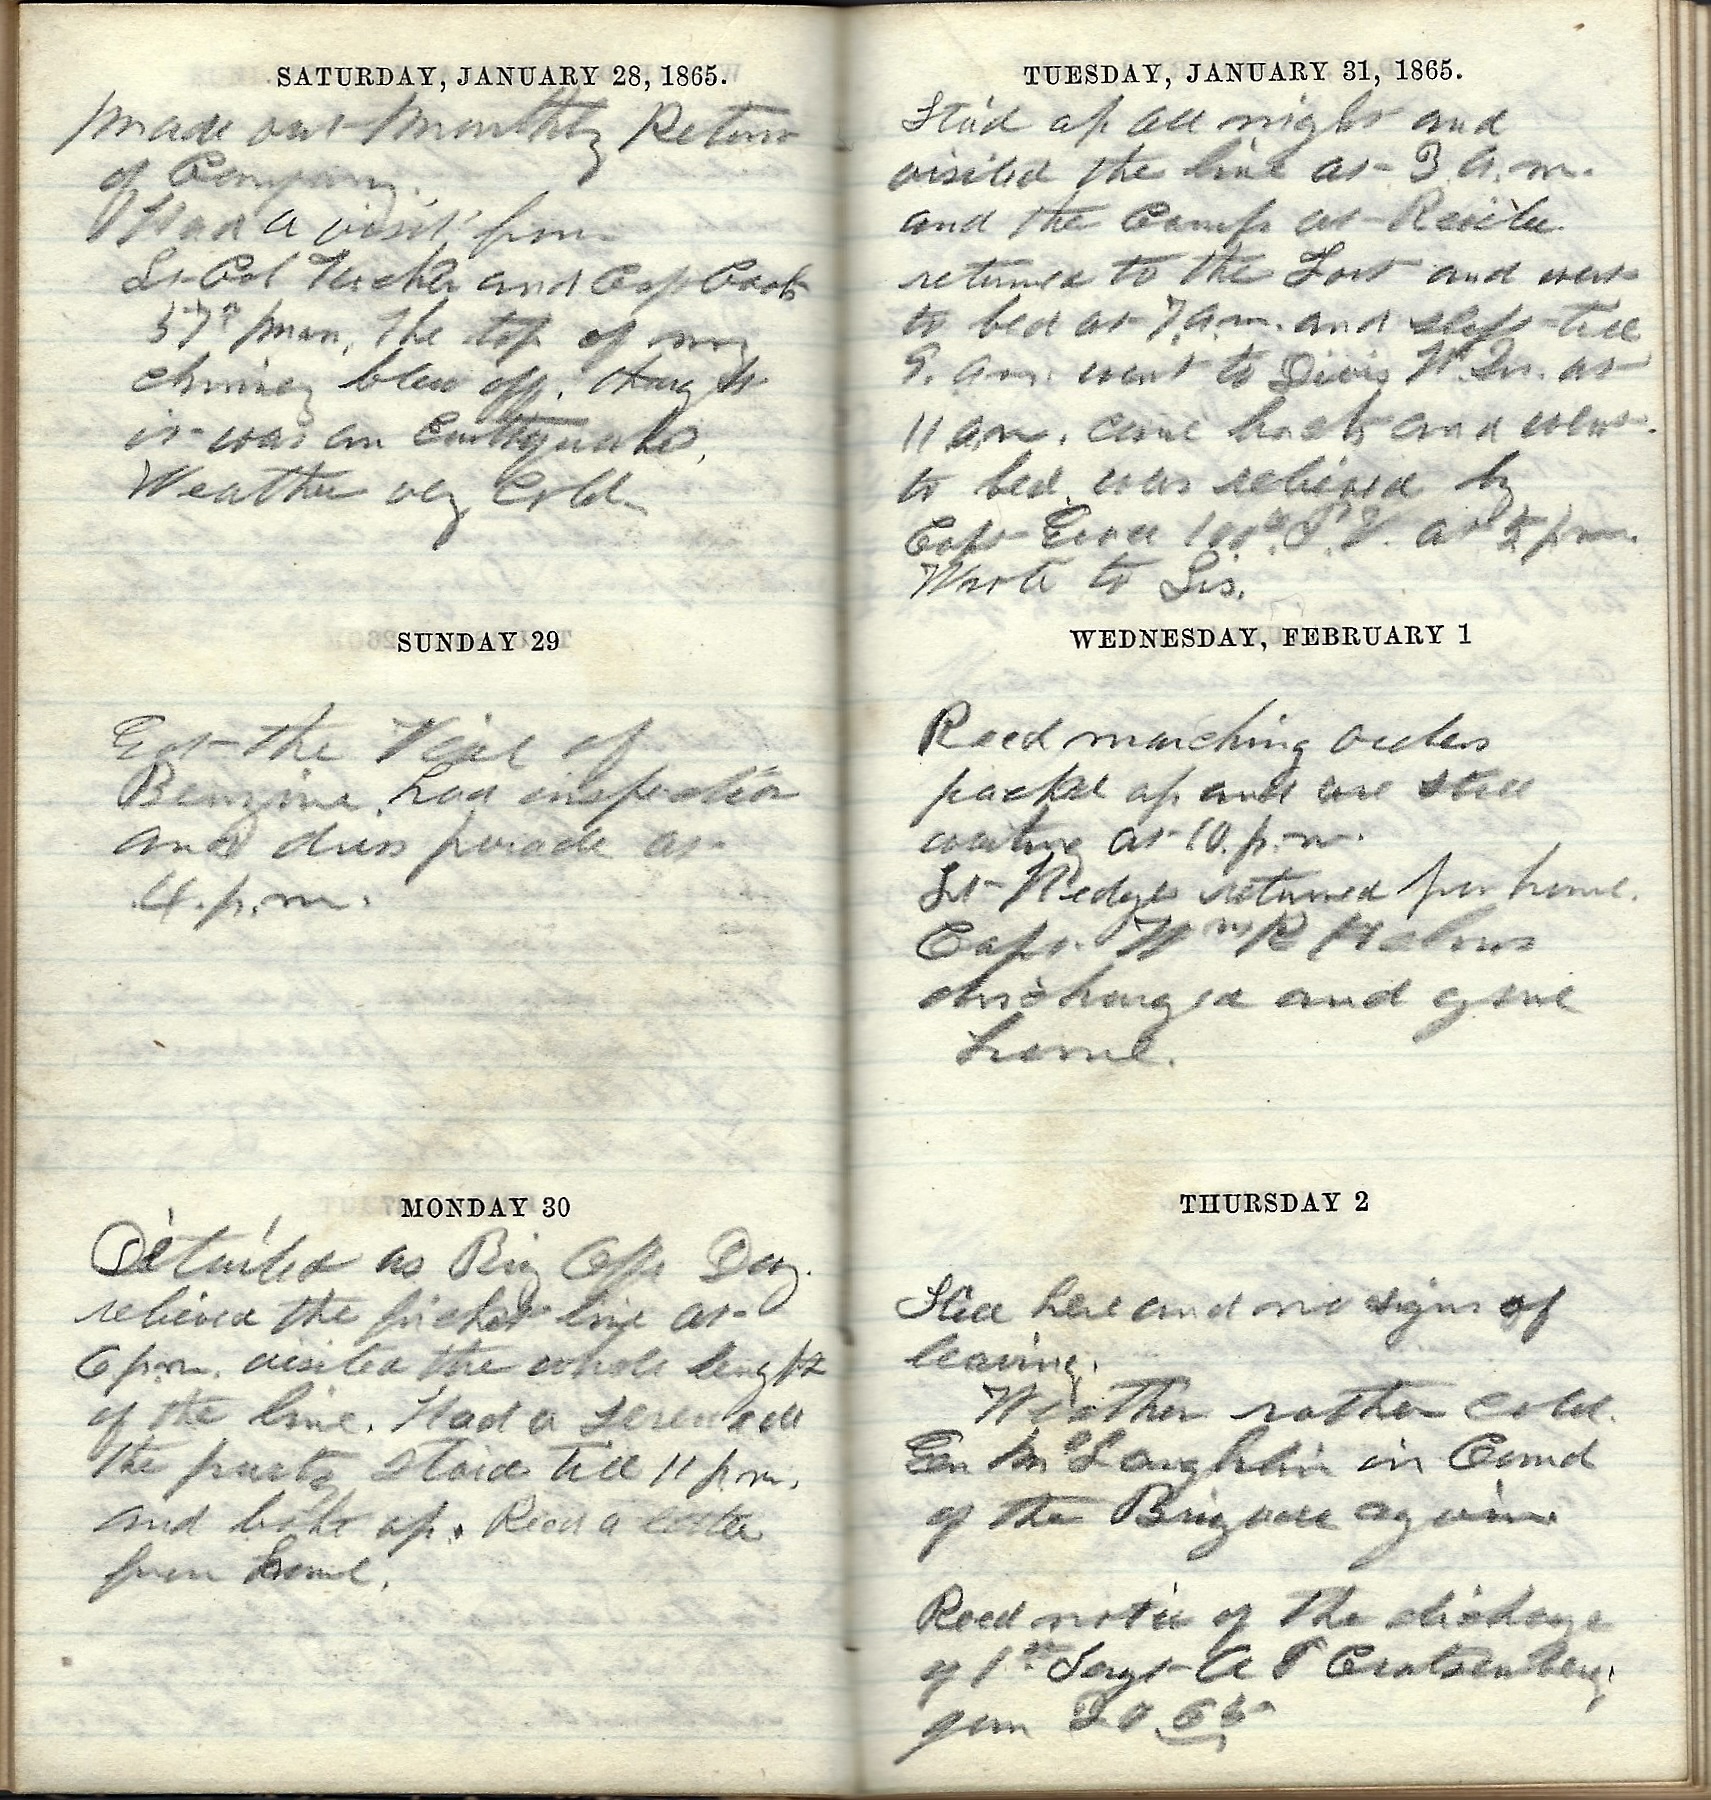 SATURDAY, JANUARY 28, 1865.
Made out Monthly Return
of Company.
Had a visit from
Lt Col Tucker and Capt Cook
57" Mass, the top of my
chimney blew off,
it was an Earthquake,
Weather very Cold
SUNDAY 29
Got the Veil of
Benzine had inspection
and dress parade at
4. p.m.
MONDAY 30
Detailed as Brig Offr Day.
relieved the picket line at
6 p.m. visited the whole length
of the line. Had a serenade
the party staid till 11 p.m.
and broke up. Recd a letter
from home.
TUESDAY, JANUARY 31, 1865.
Staid up all night and
visited the line at 3 a.m.
and the Camp at Reveile
returned to the Fort and went
to bed at 7 a.m. and slept till
9. a.m. went to Divis H. Qrs. at
11 a.m. came back and went
to bed. was relieved by
Capt 100th P.V. at 5 p.m.
Wrote to Sis.
WEDNESDAY, FEBRUARY 1
Recd marching orders
packed up and are still
waiting at 10. p.m.
Lt Hedge returned from home.
Capt. Wm R
discharged and gone
home.
THURSDAY 2
Still here and no signs of
leaving.
Weather rather cold.
Gen McLaughlin in Comd
of the Brigade again
Recd notice of the discharge
of 1st Sergt A T